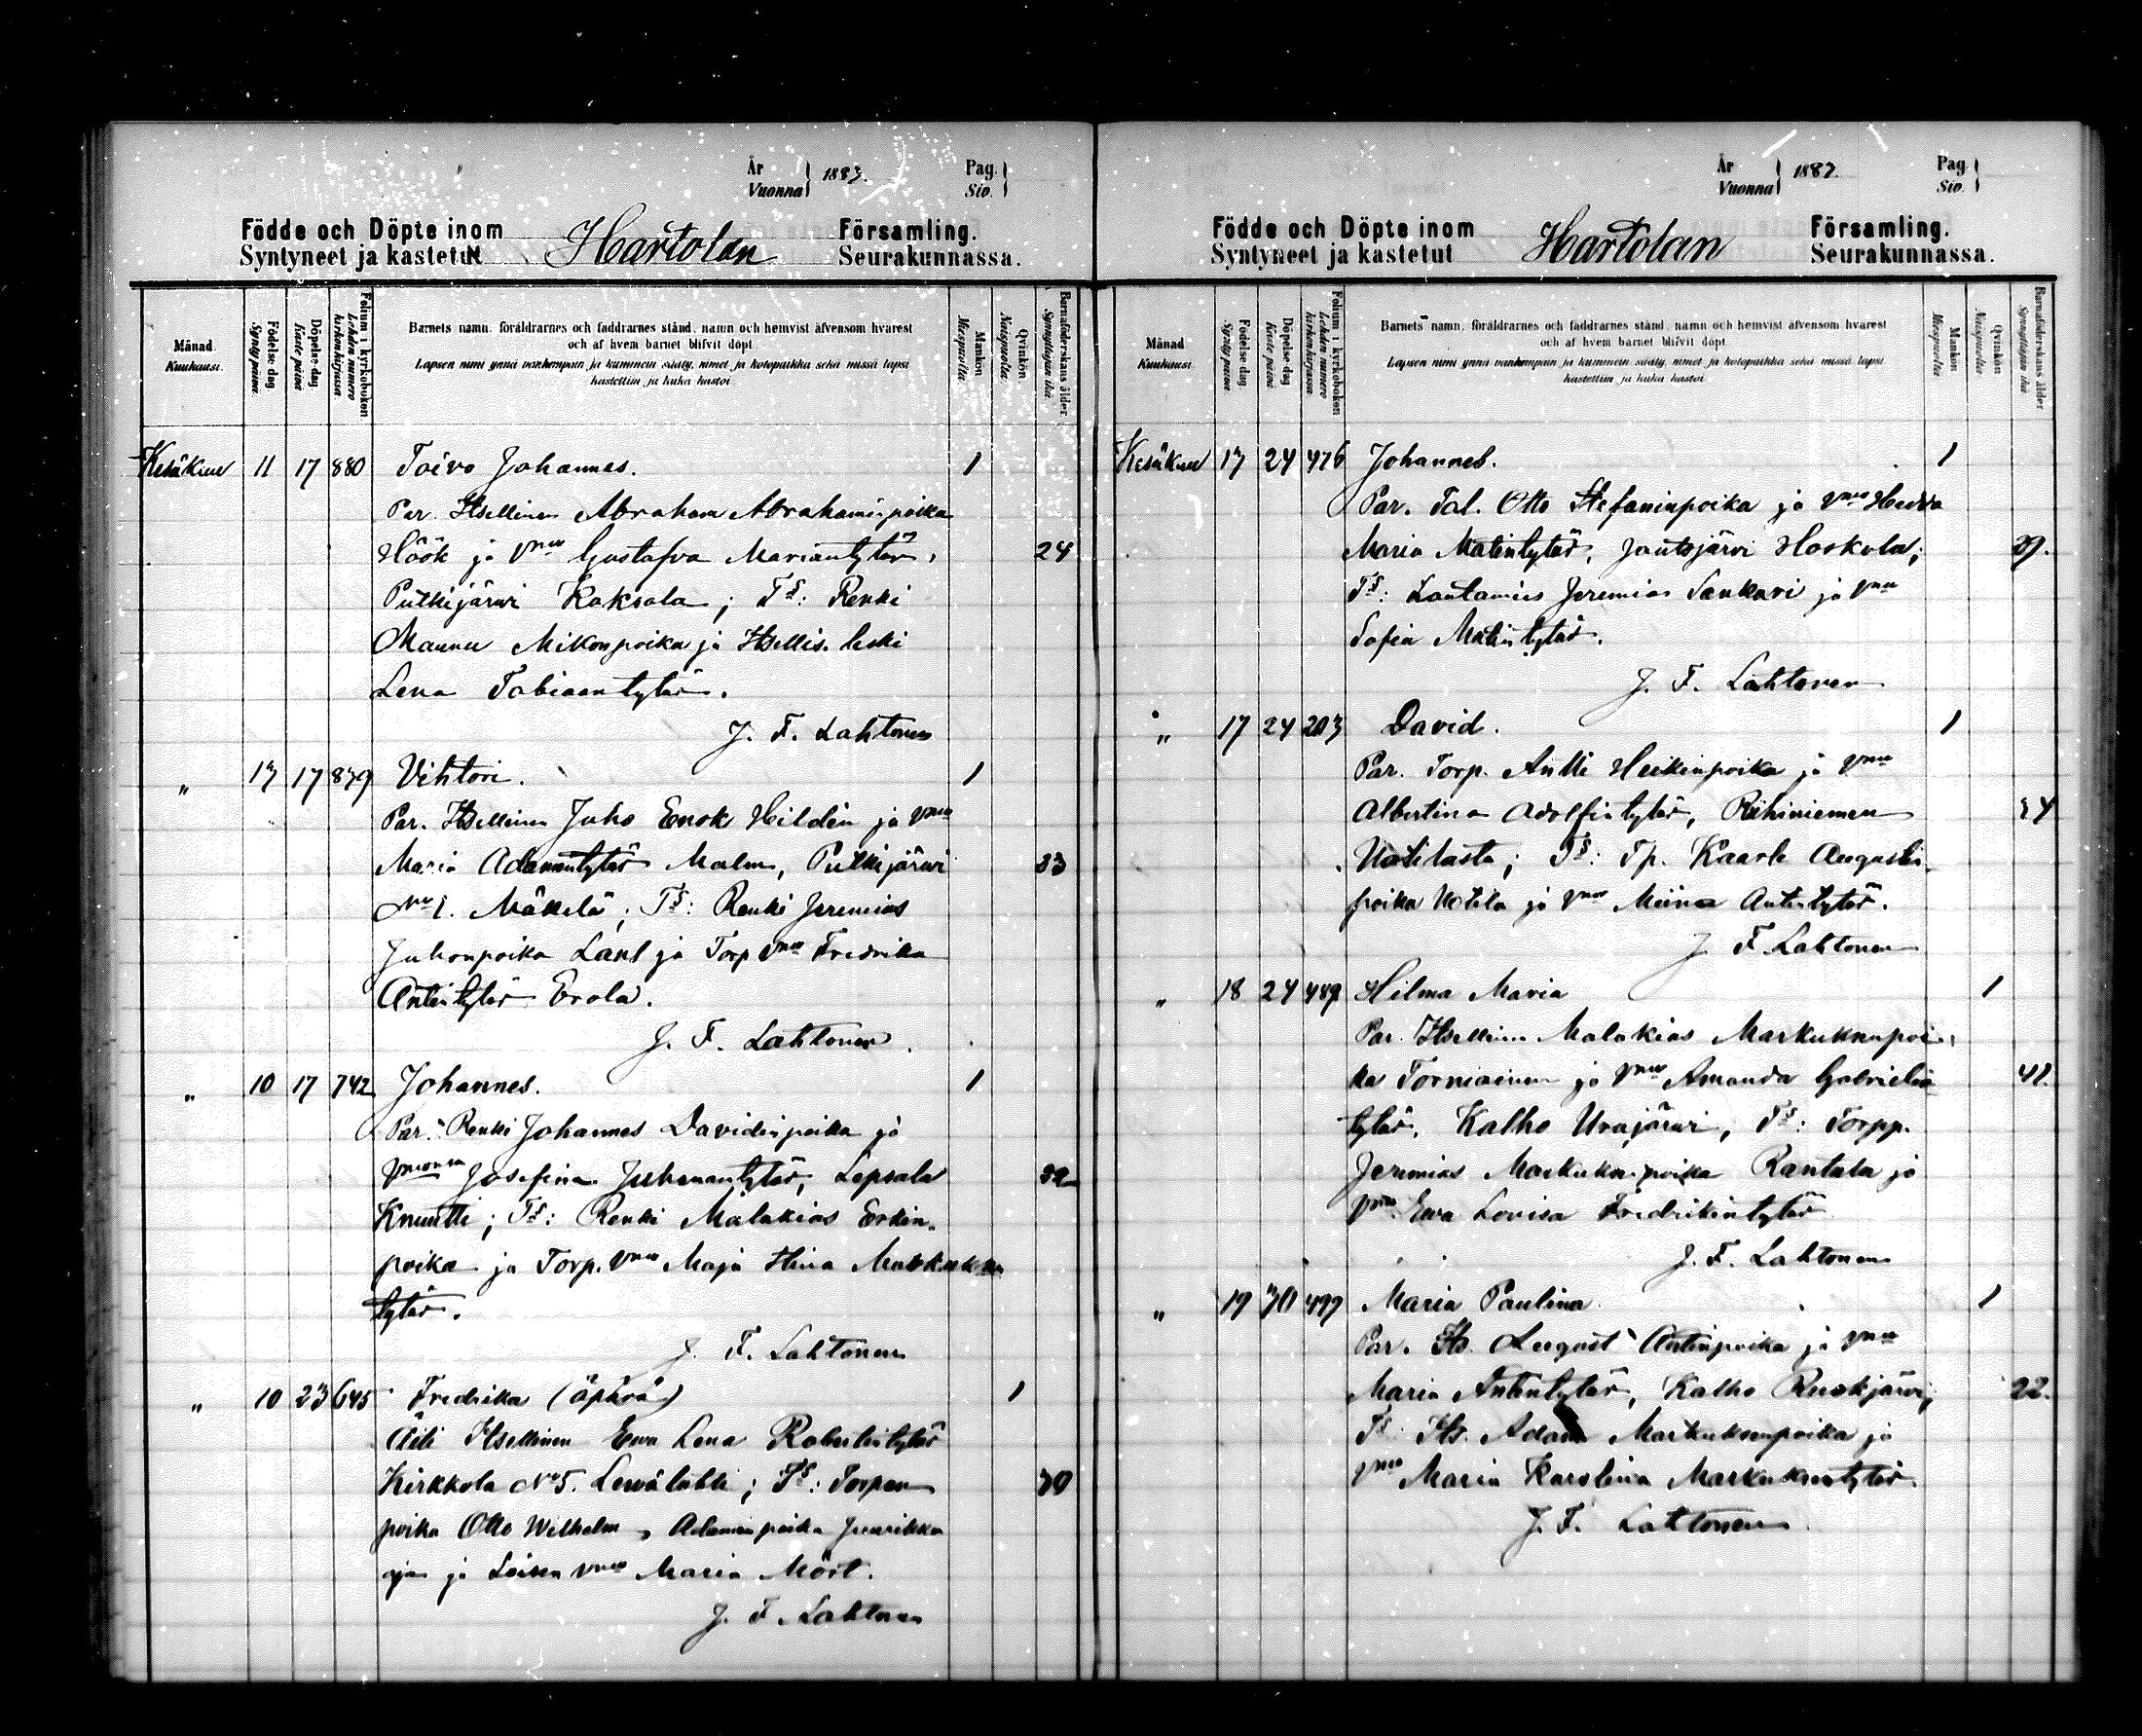 År
Vuonna 1883.
Pag.
Siv.
Födde och Döpte inom Hartolan Församling.
Syntyneet ja kastetut Seurakunnassa.
Månad
Kuukausi.
Födelse-dag
Syntypäivä
Döpelse-dag
Kaste päivä
Folium i kyrkoboken
Lehden numero kirkonkirjassa
Barnets namn, föräldrarnes och faddrarnes stånd, namn och hemvist äfvensom hvarest
och af hvem barnet blifvit döpt.
Lapsen nimi ynnä vanhempain ja kummein sääty, nimet ja kotopaikka sekä missä lapsi
kastettiin ja kuka kastoi.
Mankön
Miespuolta
Qvinkön
Naispuolta
Barnaföderskans ålder
Synnyttäjän ikä
Kesäkuu 11 17 880 Toivo Johannes. 1
Par. Itsellinen Abraham Abrahaminpoika
Höök ja Vmo Gustafva Mariantytär, 24
Putkijärvi Koksala; Ts: Renki
Maunu Mikonpoika ja Itsellis. leski
Lena Tobiaantytär.
J. F. Lahtonen
„ 13 17 879 Vihtori. 1
Par. Itsellinen Juho Enok Hildén ja Vmo
Maria Adamintytär Malm, Putkijärvi 33
No 1. Mäkelä; Ts: Renki Jeremias
Juhonpoika Lant ja Torp Vmo Fredrika
Antintytär Erola.
J. F. Lahtonen.
„ 10 17 742 Johannes. 1
Par. Renki Johannes Davidinpoika ja
Vmonsa Josefina Juhanantytär, Lepsala 22
Knuutti; Ts: Renki Malakias Erkin-
poika ja Torp. Vmo Maja Stina Markukse
tytär.
J. F. Lahtonen
„ 10 23 645 Fredrika (äpärä) 1
Äiti Itsellinen Ewa Lena Robertintytär
Kirkkola No 5. Lewälahti; Ts: Torpan
poika Otto Wilhelm Adaminpoika
ja Loisen Vmo Maria Mört.
J. F. Lahtonen
År
Vuonna 1883.
Pag.
Siv.
Födde och Döpte inom Hartolan Församling.
Syntyneet ja kastetut Seurakunnassa.
Månad
Kuukausi
Födelse-dag
Syntypäivä
Döpelse-dag
Kaste päivä
Folium i kyrkoboken
Lehden numero kirkonkirjassa
Barnets namn, föräldrarnes och faddrarnes stånd, namn och hemvist äfvensom hvarest
och af hvem barnet blifvit döpt.
Lapsen nimi ynnä vanhempain ja kummein sääty, nimet ja kotopaikka sekä missä lapsi
kastettiin ja kuka kastoi.
Mankön
Miespuolta
Qvinkön
Naispuolta
Barnaföderskans ålder
Synnyttäjän ikä
Kesäkuu 13 24 476 Johannes. 1
Par. Tal. Otto Stefaninpoika ja Vmo Hedda
Maria Matintytär, Joutsjärvi Hoskola; 39.
Ts: Lautamies Jeremias Sankari ja Vmo
Sofia Matintytär.
J. F. Lahtonen
„ 17 24 203 David. 1
Par. Torp. Antti Heikinpoika ja Vmo
Albertina Adolfintytär, Riihiniemen 24
Uotilasta; Ts: Tp. Kaarle Augustin-
poika Uotila ja Vmo Miina Antintytär.
J. F. Lahtonen
„ 18 24 489 Hilma Maria 1
Par. Itsellinen Malakias Markuksenpoi-
ka Torniainen ja Vmo Amanda Gabrielin 42
tytär. Kalho Urajärvi, Ts: Torpp.
Jeremias Markuksenpoika Rantala ja
Vmo Ewa Lovisa Fredrikintytär
J. F. Lahtonen
„ 19 30 499 Maria Paulina. 1
Par. Its. August Antinpoika ja Vmo
Maria Antintytär, Kalho Ruokjärvi; 22.
Ts: Its. Adam Markuksenpoika ja
Vmo Maria Karolina Markuksentytär.
J. F. Lahtonen